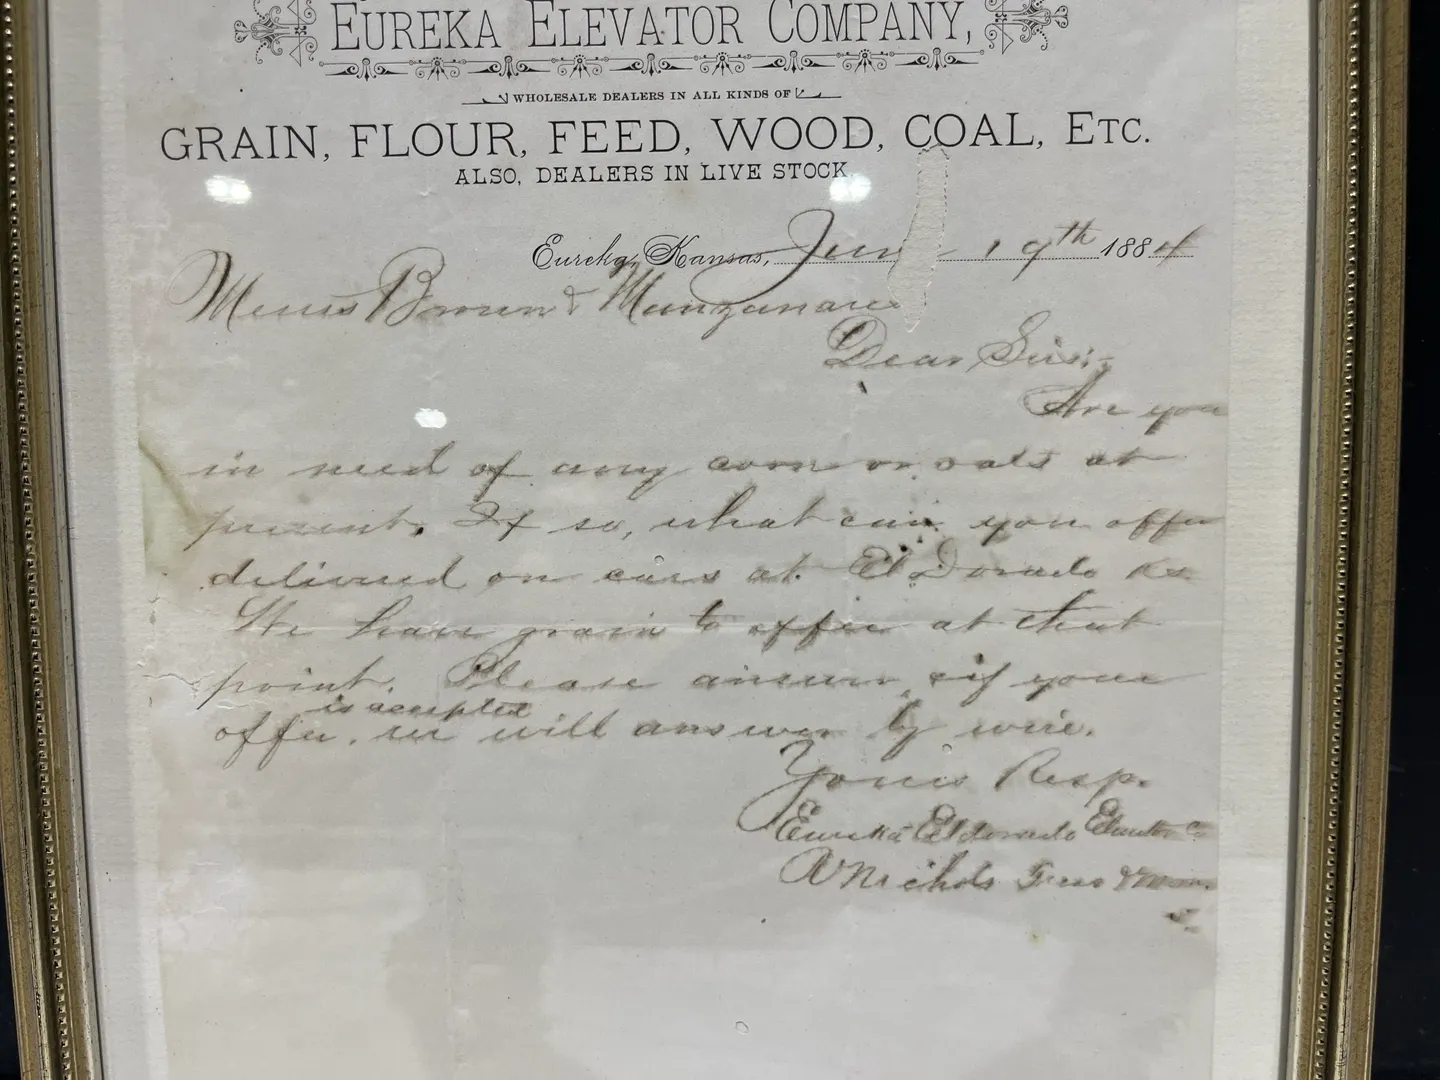 EUREKA ELEVATOR COMPANY,
WHOLESALE DEALERS IN ALL KINDS OF
GRAIN, FLOUR, FEED, WOOD, COAL, ETC.
ALSO, DEALERS IN LIVE STOCK
Eureka, Kansas, Jun 19th 1884
Messrs Brown & Manzanares
Dear Sirs:-
Are you
in need of any corn or oats at
present. If so, what can you offer
delivered on cars at El Dorado Ks.
We have grain to offer at that
point. Please answer, if your
is accepted
offer, we will answer by wire.
Yours Resp.
Eureka Eldorado Elevator Co
Nichols Treas